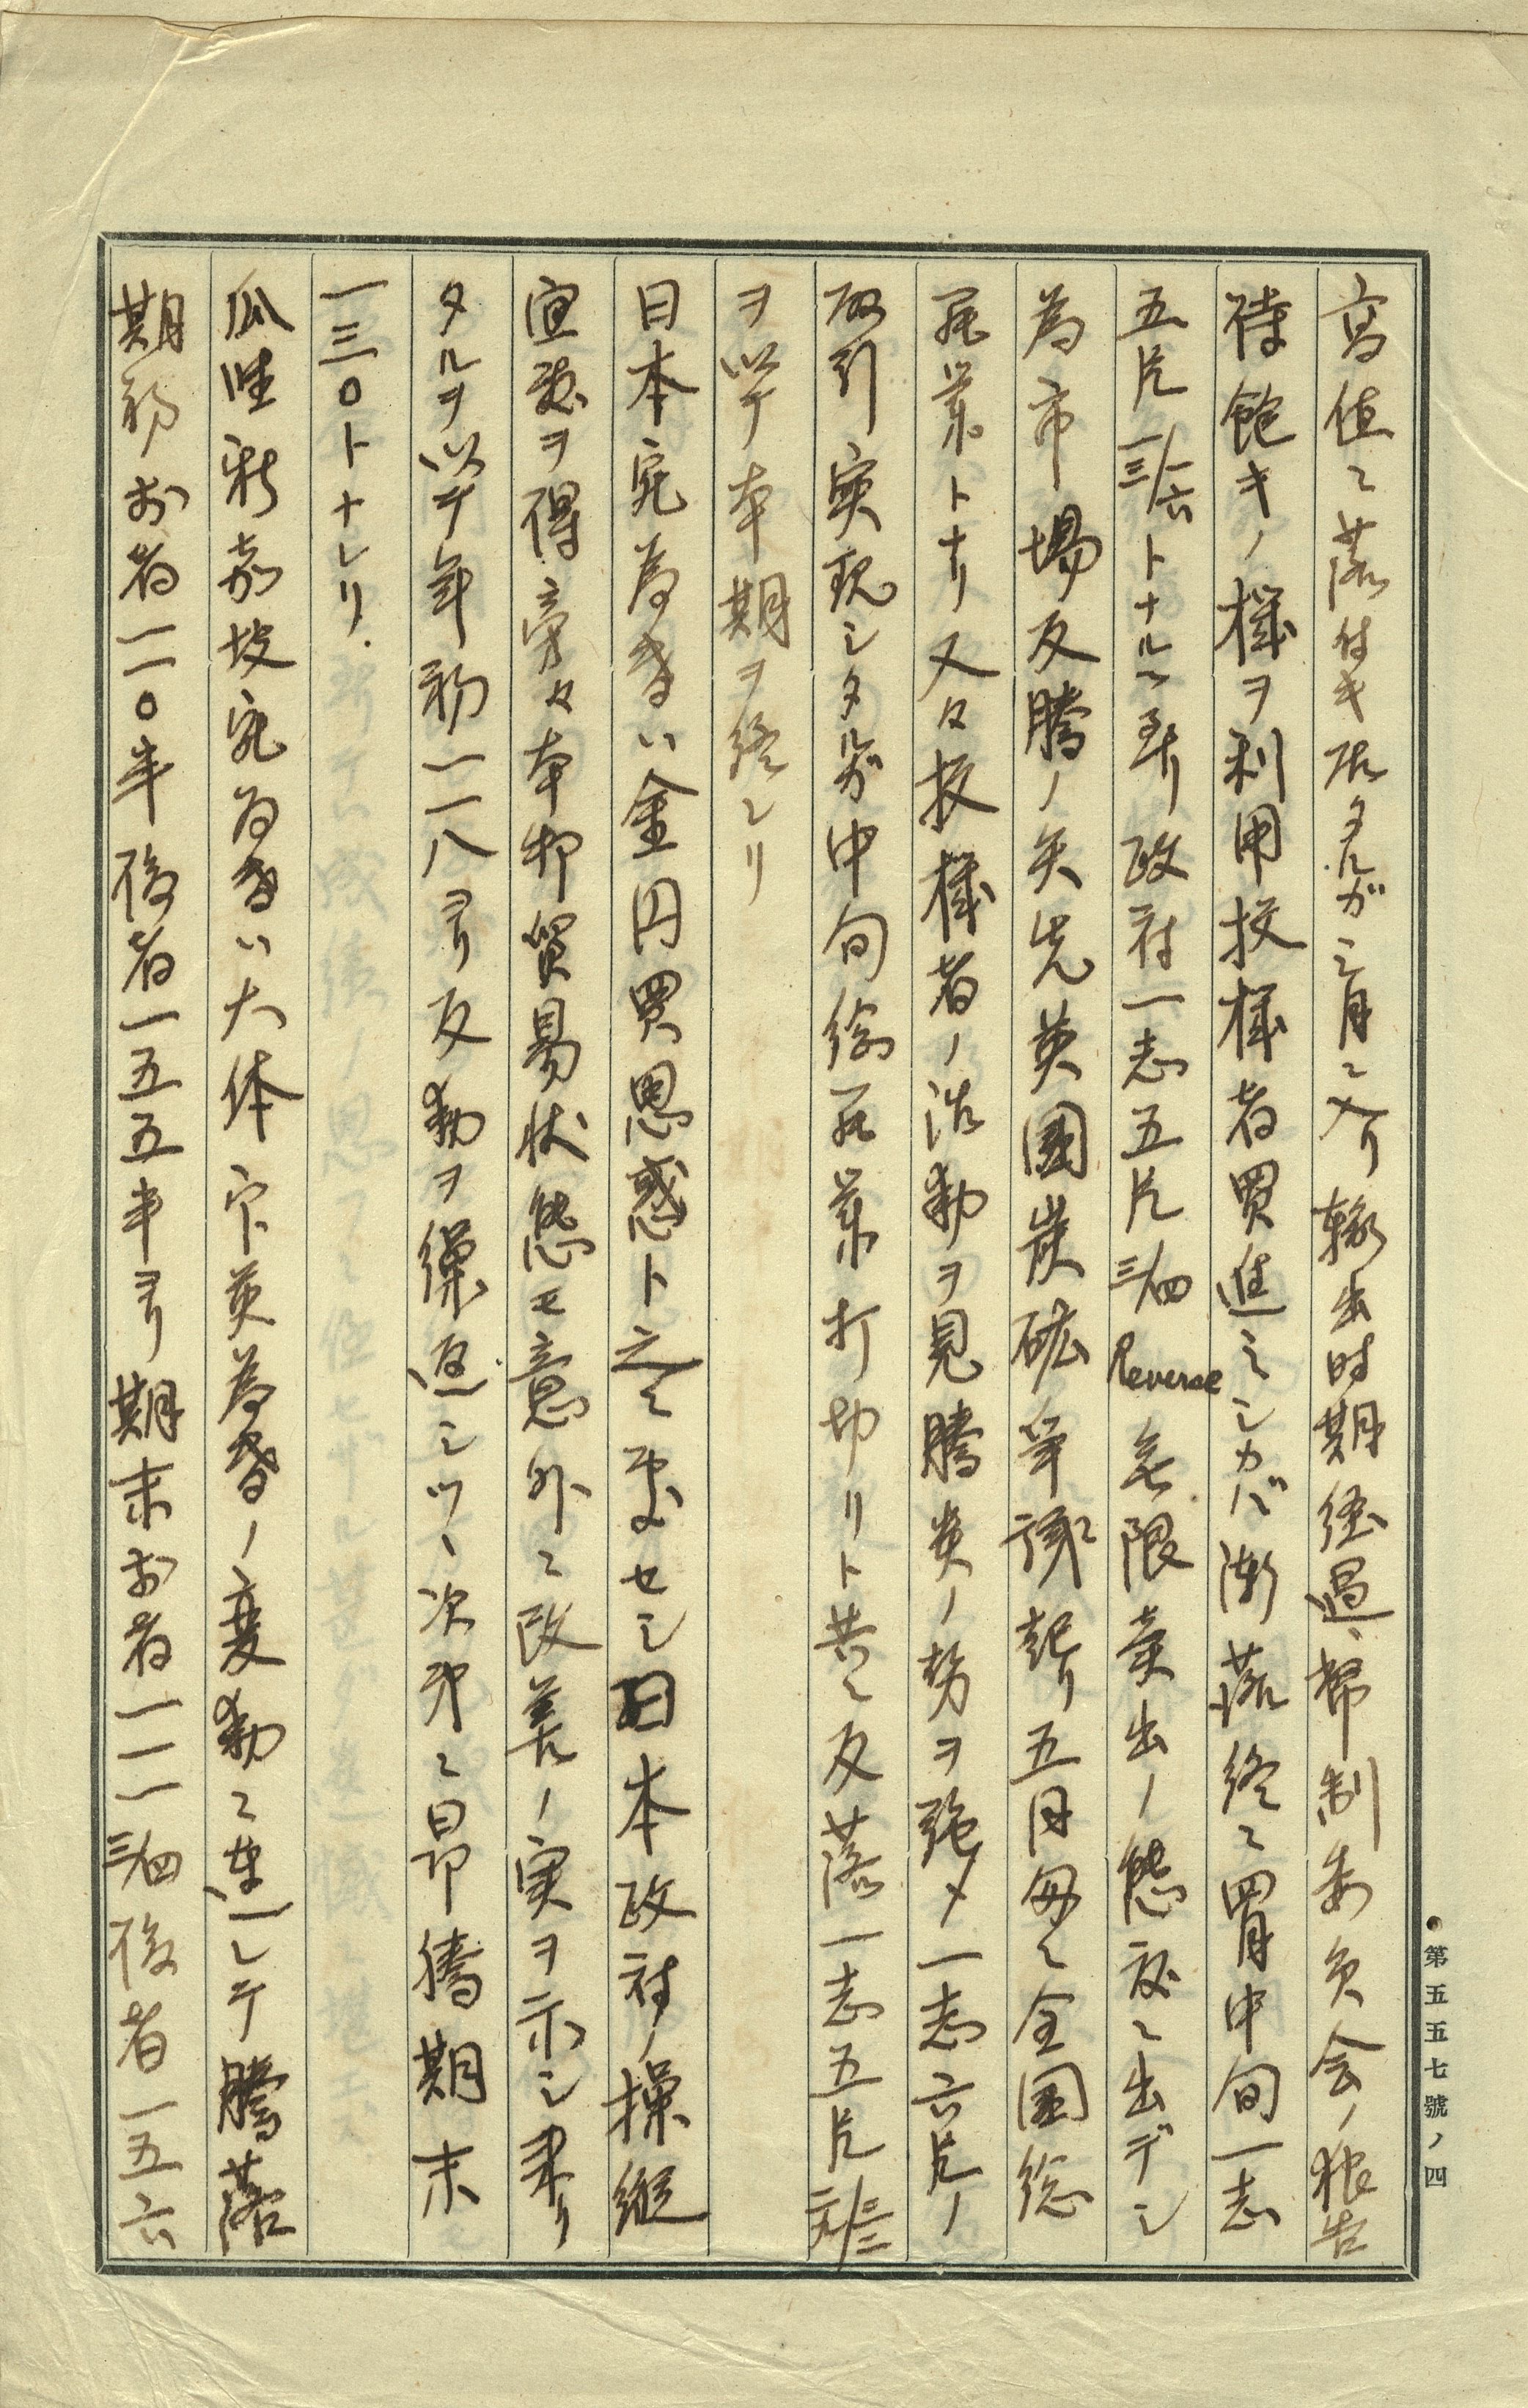 高値ニ落付キ居タルガ三月ニ入リ輸出時期経過、幣制委員会ノ報告
待飽キノ機ヲ利用投機者買進ミシカバ漸落終ニ四月中旬一志
五片一三/一六トナルニ至リ政府一志五片三/四 Reverse 無限売出ノ態度ニ出デシ
為市場反騰ノ矢先英国炭砿争議起リ五月毎ニ全国総
罷業トナリ又々投機者ノ活動ヲ見騰貴ノ勢ヲ弛メ一志六片ノ
取引実現シタルガ中旬総罷業打切リト共ニ反落一志五片
ヲ以テ本期ヲ終レリ
日本宛為替ハ金円買思惑ト之ニ乗ゼシ日本政府ノ操縦
宜敷ヲ得旁々本邦貿易状態モ意外ニ改善ノ実ヲ示シ来リ
タルヲ以テ年初一一八ヨリ反動ヲ繰返シツヽ次第ニ昂騰期末
一三〇トナレリ.
瓜哇新嘉坡宛為替ハ大体不英為替ノ変動ニ連レテ騰落
期初前者一一〇半後者一五五半ヨリ期末前者一一一三/四後者一五六
第五五七號ノ四